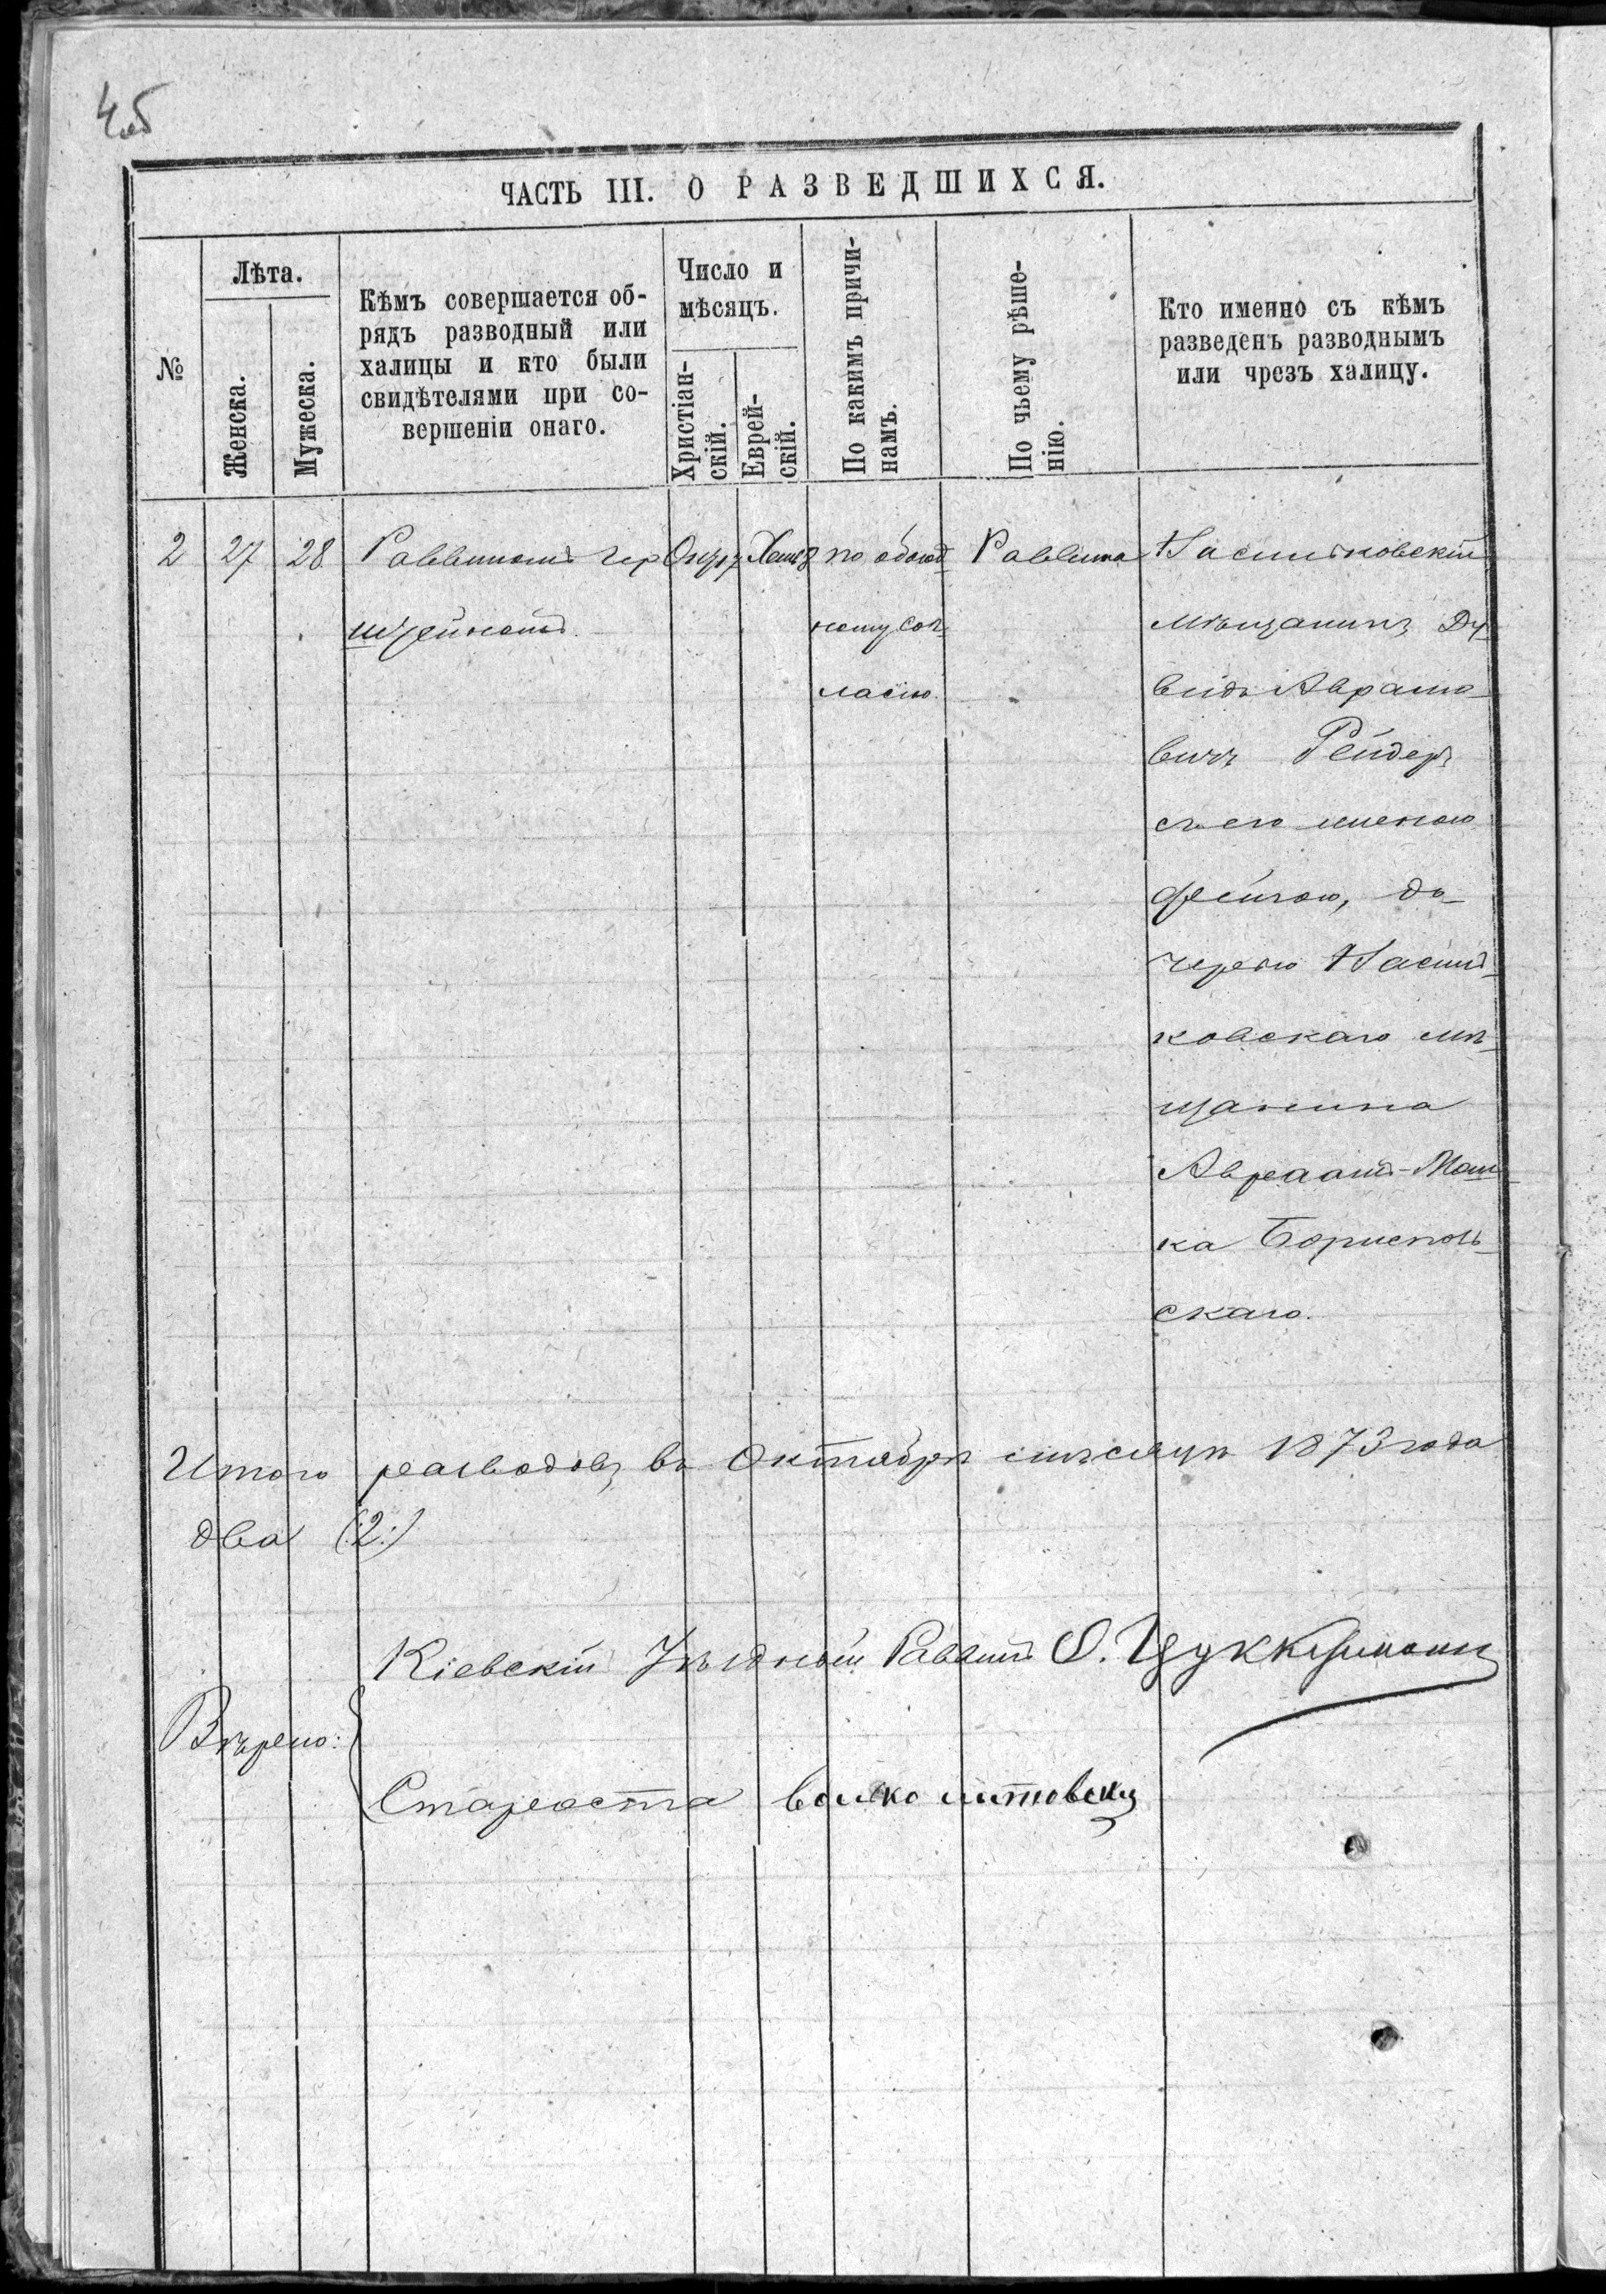 ЧАСТЬ III. О РАЗВЕДШИХСЯ.
№
Лѣта.
Женска.
Мужеска.
Кѣмъ совершается об-
рядъ разводный или
халицы и кто были
свидѣтелями при со-
вершеніи онаго.
Число и
мѣсяцъ.
Христіан-
скій.
Еврей-
скій.
По какимъ причи-
намъ.
По чьему рѣше-
нію.
Кто именно съ кѣмъ
разведенъ разводнымъ
или чрезъ халицу.
2 27 28 Раввиномъ Цук
керманомъ
по обоюд
ному сог
ласію
Раввина
Васильковскій
мѣщанинъ Ду
видъ Аврамо
вичъ Рейдеръ
съ его женою
Фейгою, до-
черью Василь
ковскаго мѣ
щанина
Авраамъ-Мош
ка Борисполь
скаго.
Итого разводовъ въ Октябрѣ мѣсяцѣ 1873 года
два (:2:)
Кіевскій Уѣздный Раввинъ О. Цуккерманъ
Вѣрно:
Староста Волко литовскій